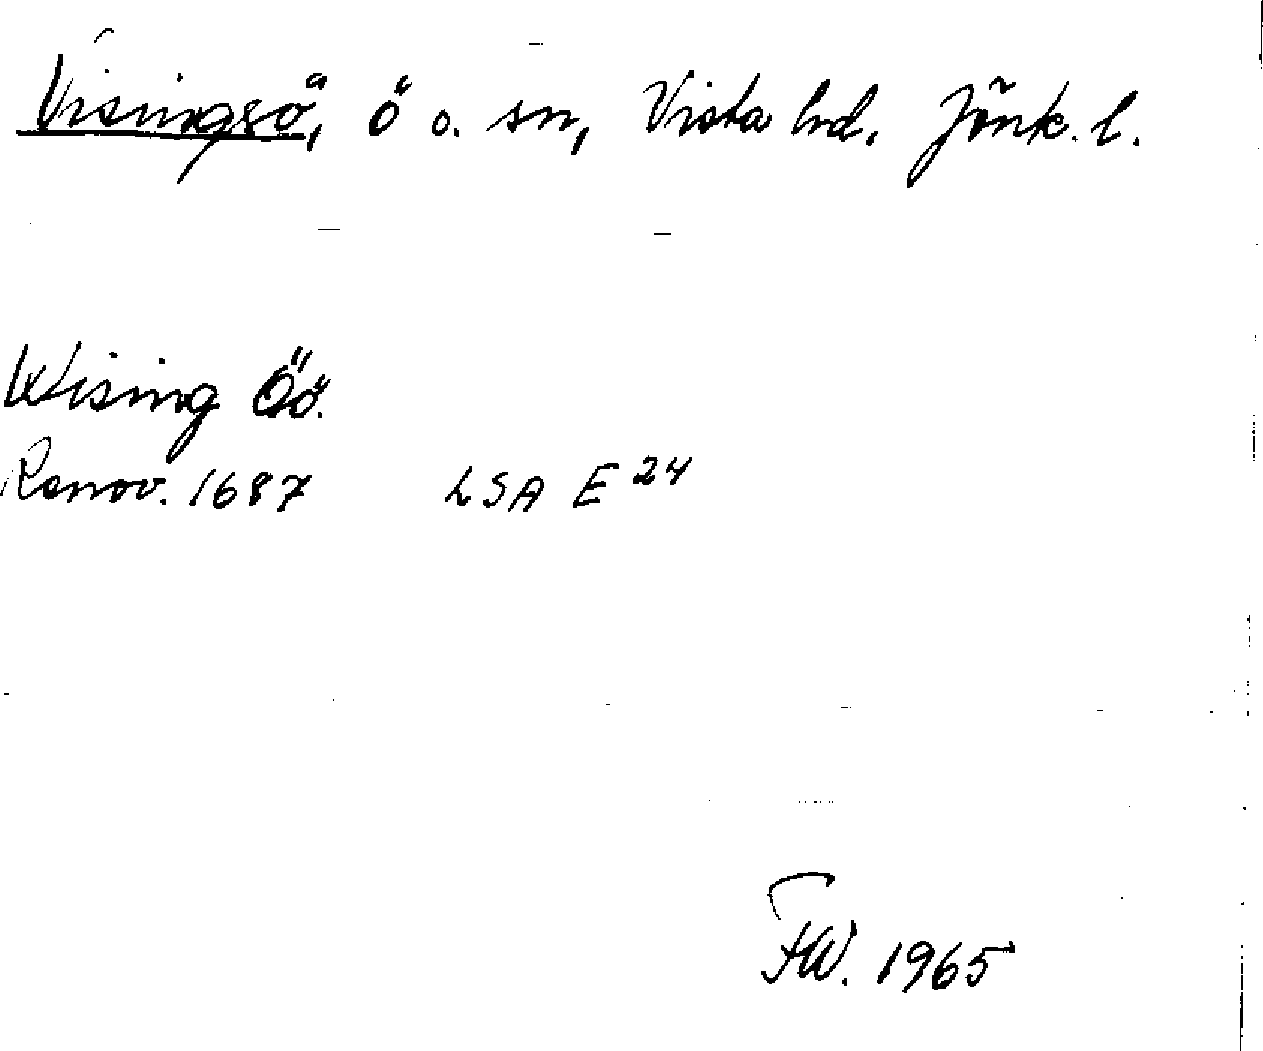 Visingsö, ö o. sn, Vista hd. Jönk. l.
Wising Öö.
Renov. 1687 LSA E 24
FW. 1965